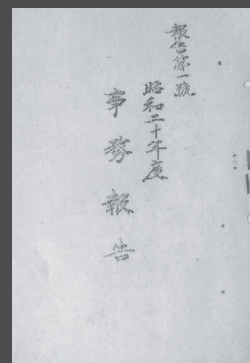 報告第一號
昭和二十年度
事務報告